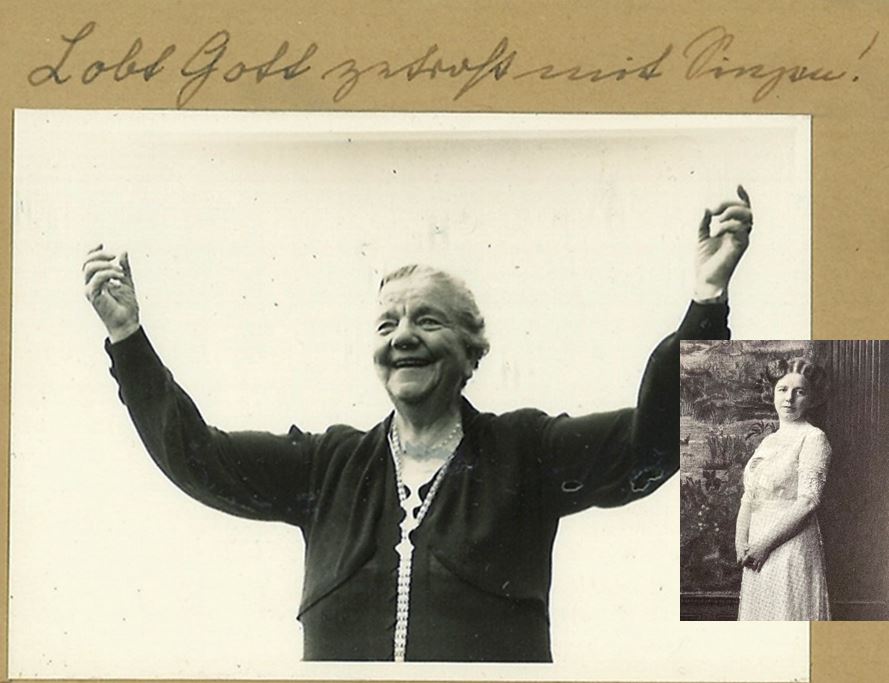 Lobt Gott getrost mit Singen!